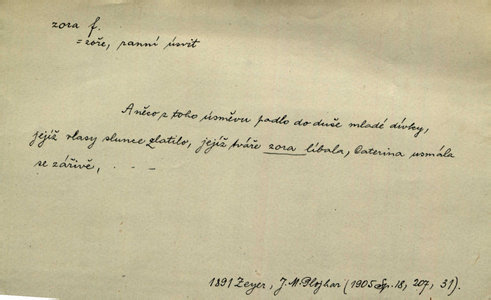 zora f.
= zoře, ranní úsvit
A něco z toho úsměvu padlo do duše mladé dívky,
jejíž vlasy slunce zlatilo, jejíž tváře zora líbala, Caterina usmála
se zářivě, - - -
1891 Zeyer, J. M. Plojhar (1905 Sp. 18, 207, 31).